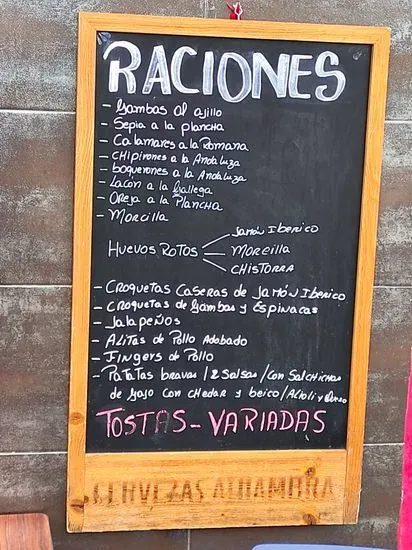 RACIONES
- Gambas al ajillo
- Sepia a la plancha
- Calamares a la Romana
- CHIPIRONES a la Andaluza
- boquerones a la Andaluza
- Lacón a la Gallega
- Oreja a la Plancha
- Morcilla
HUEVOS ROTOS
Jamón Iberico
Morcilla
CHISTORRA
- CROQUETAS CASERAS de JAMÓN IbeRico
- CROQUETAS de Gambas y Espinacas
- Jalapeños
- Alitas de Pollo Adobado
- Fingers de Pollo
- Patatas bravas / 2 Salsas / Con Salchichas
de con CHEDAR y beico / Alioli y
TOSTAS - VARIADAS
CERVEZAS ALHAMBRA